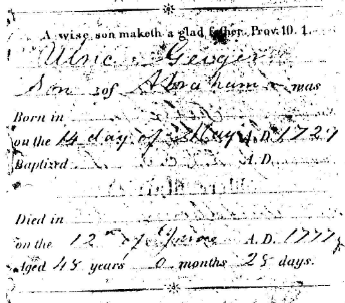 A wise son maketh a glad father Prov: 10. 1.
Ulric
Son of Abraham was
Born in
on the 14 day of May A.D. 1729
Baptized A.D.
Died in
on the 12 of June A.D. 1777
Aged 48 years 0 months 28 days.